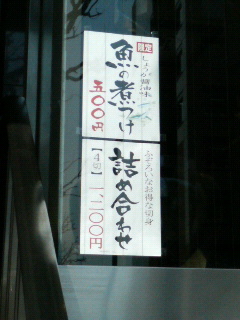 限定
しょうが醤油味
魚の煮つけ
五〇〇円
ふぞろいなお得な切身
詰め合わせ
【4切】一、二〇〇円